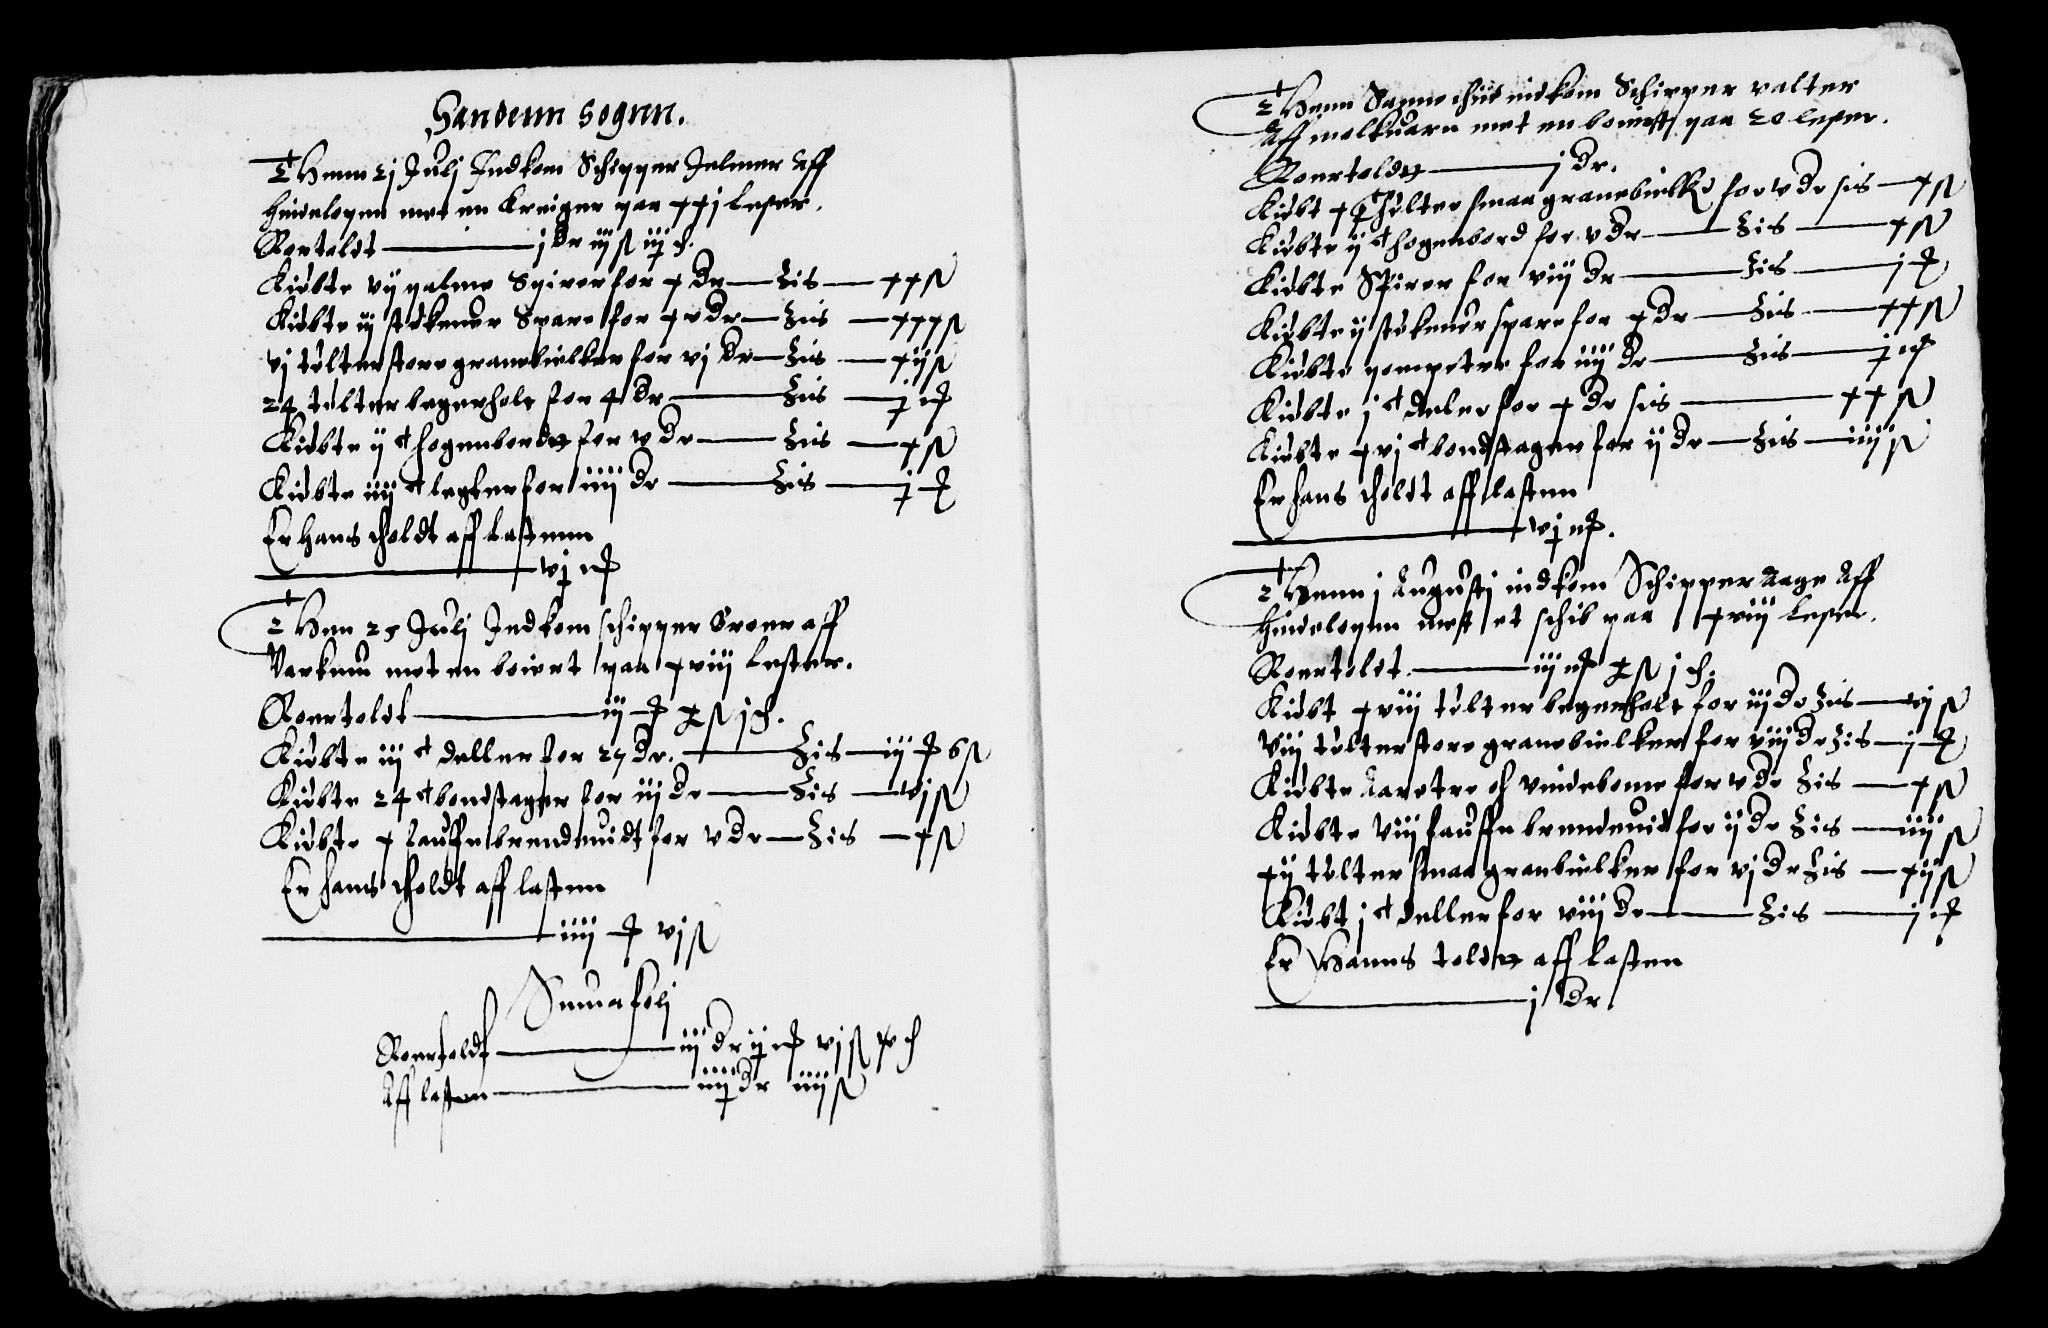 Sandeuin sognn.
Thenn 21 Julj Indkom Schipper Jelmer Aff
hindelopen met en Kreiger paa xxj Lester.
Roertoldt — j dr iij ß iij ch.
Kiøbte vij palme Spirer for x dr — Zis — xx ß
Kiøbte iij støkener Spare for xv dr — Zis — xxx ß
vj tølter store granebielker for vj dr — Zis — xij ß
24 tølter legerholt for 4 dr — Zis — j
Kiøbte ij hogenborde for v dr — Zis — x ß
Kiøbte iiij legter for iiij dr — Zis — j
Er hans tholdt aff Lastenn
— vj
Thenn 25 Julj Indkom schipper Broer aff
Varkum met en boiert paa xviij Lester.
Roertoldt — iij ß j ch.
Kiøbte iij deller for 27 dr. — Zis — iij 6 ß
Kiøbte 24 bondstager for iij dr — Zis — vj ß
Kiøbte x fauffn brendeuidt for v dr — Zis — x ß
Er hans tholdt aff lastenn
— iiij vj ß
Suma folj
Roertoldt — iij dr ij vj ß ch
Aff lasten — iiij dr iiij ß
Thenn Samme thiid indkom Schipper valter
Aff molkuarn met en boiert paa 20 lester.
Roertolds — j dr.
Kiøbt x tholter smaa granebielker for v dr sis — x ß
Kiøbte ij hogenbord for v dr — Zis — x ß
Kiøbte Spirer for viij dr — Zis — j
Kiøbte ij støkener spare for x dr — Zis — xx ß
Kiøbte pompetre for iiij dr — Zis — j
Kiøbte j deler for x dr sis — xx ß
Kiøbte xvj bondstager for ij dr — Zis — iiij ß
Er hans tholdt aff lasten
— vj
Thenn j Augustj indkom Schipper Aage Aff
hindelopen mest et schib paa xviij Lester.
Roertoldt — iij ß j ch.
Kiøbt xviij tølter legerholt for iij dr Zis — vj ß
Viij tølter store granebielker for viij dr Zis — j
Kiøbte Aaretre och vindebome for v dr Zis — x ß
Kiøbte Viij fauffn brendeuid for ij dr Zis — iiij ß
xij tølter smaa granbielker for vj dr Zis — xij ß
Kiøbt j deller for viij dr — Zis — j
Er Hanns told aff lasten
— j dr